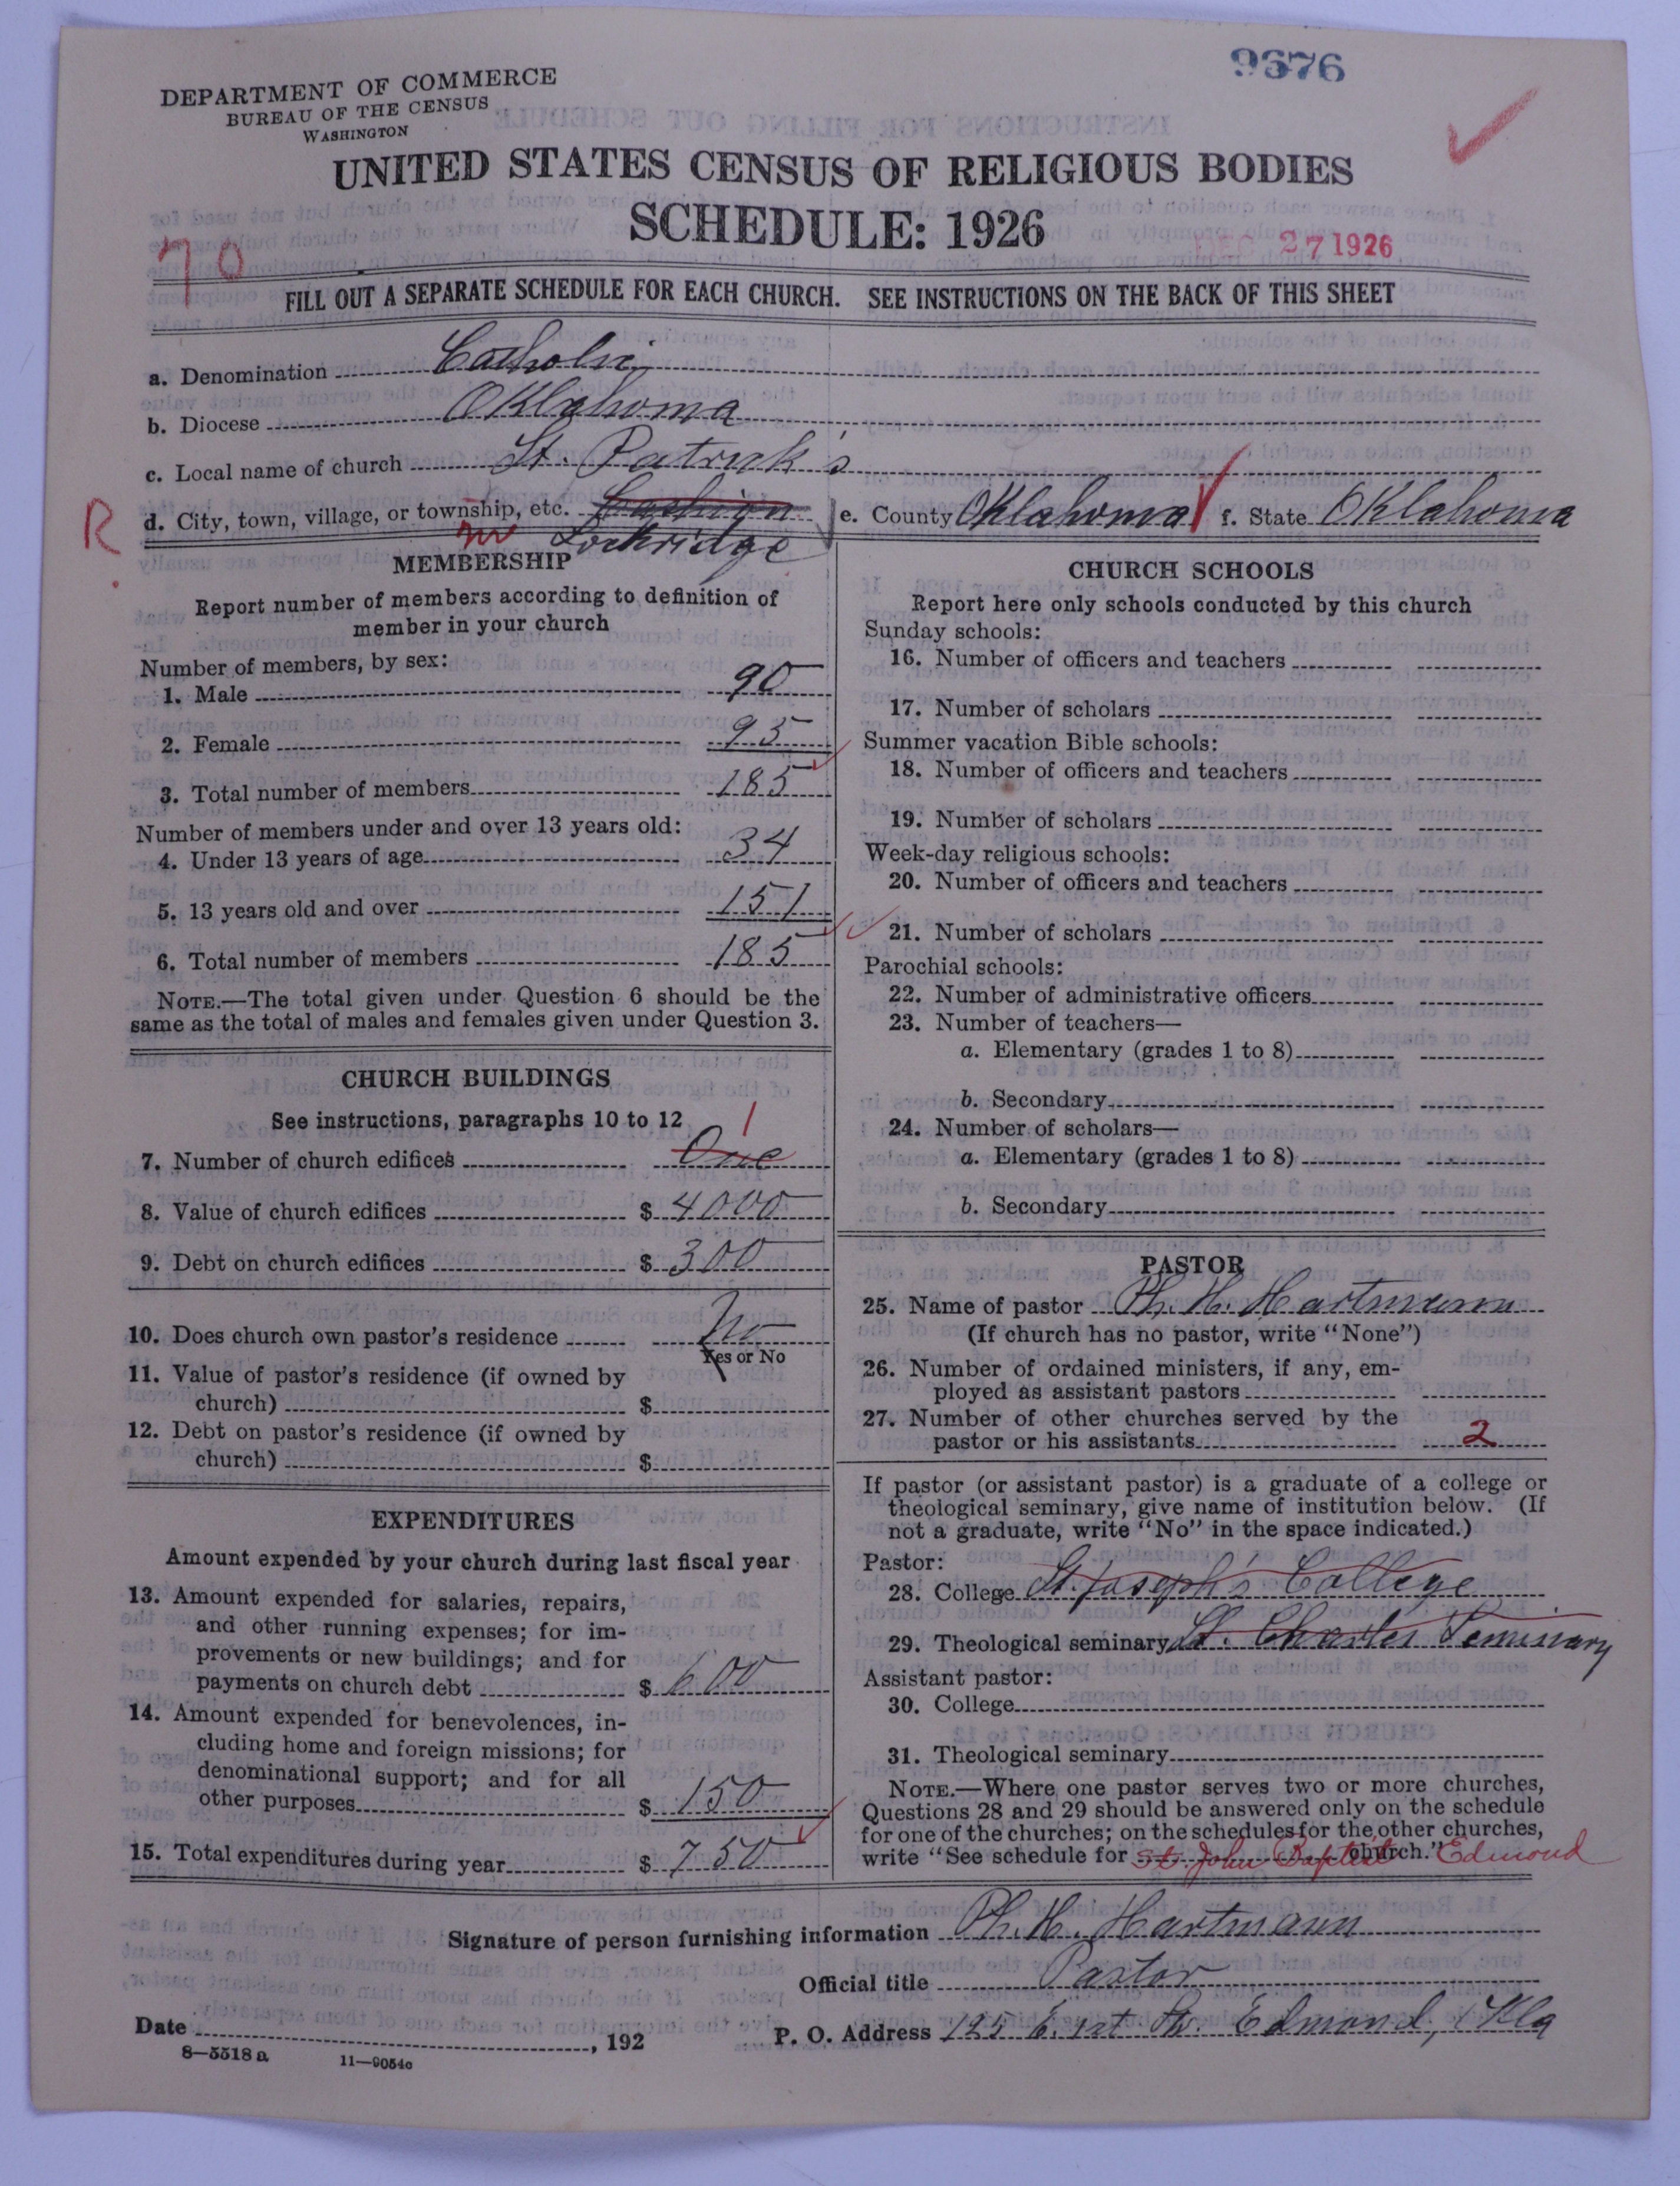 9676
DEPARTMENT OF COMMERCE
BUREAU OF THE CENSUS
WASHINGTON
UNITED STATES CENSUS OF RELIGIOUS BODIES
SCHEDULE: 1926
DEC 27 1926
70
FILL OUT A SEPARATE SCHEDULE FOR EACH CHURCH. SEE INSTRUCTIONS ON THE BACK OF THIS SHEET
a. Denomination Catholic
b. Diocese Oklahoma
c. Local name of church St. Patrick's
R d. City, town, village, or township, etc. Cashion e. County Oklahoma f. State Oklahoma
nr Lockridge
MEMBERSHIP
Report number of members according to definition of
member in your church
Number of members, by sex:
1. Male 90
2. Female 95
3. Total number of members 185
Number of members under and over 13 years old:
4. Under 13 years of age 34
5. 13 years old and over 151
6. Total number of members 185
NOTE.—The total given under Question 6 should be the
same as the total of males and females given under Question 3.
CHURCH BUILDINGS
See instructions, paragraphs 10 to 12
1
7. Number of church edifices One
8. Value of church edifices $ 4000
9. Debt on church edifices $ 300
10. Does church own pastor's residence No
Yes or No
11. Value of pastor's residence (if owned by
church) $
12. Debt on pastor's residence (if owned by
church) $
EXPENDITURES
Amount expended by your church during last fiscal year
13. Amount expended for salaries, repairs,
and other running expenses; for im-
provements or new buildings; and for
payments on church debt $ 600
14. Amount expended for benevolences, in-
cluding home and foreign missions; for
denominational support; and for all
other purposes $ 150
15. Total expenditures during year $ 750
CHURCH SCHOOLS
Report here only schools conducted by this church
Sunday schools:
16. Number of officers and teachers
17. Number of scholars
Summer vacation Bible schools:
18. Number of officers and teachers
19. Number of scholars
Week-day religious schools:
20. Number of officers and teachers
21. Number of scholars
Parochial schools:
22. Number of administrative officers
23. Number of teachers—
a. Elementary (grades 1 to 8)
b. Secondary
24. Number of scholars—
a. Elementary (grades 1 to 8)
b. Secondary
PASTOR
25. Name of pastor Ph. H. Hartmann
(If church has no pastor, write "None")
26. Number of ordained ministers, if any, em-
ployed as assistant pastors
27. Number of other churches served by the
pastor or his assistants 2
If pastor (or assistant pastor) is a graduate of a college or
theological seminary, give name of institution below. (If
not a graduate, write "No" in the space indicated.)
Pastor:
28. College St. Joseph's College
29. Theological seminary St. Charles Seminary
Assistant pastor:
30. College
31. Theological seminary
NOTE.—Where one pastor serves two or more churches,
Questions 28 and 29 should be answered only on the schedule
for one of the churches; on the schedules for the other churches,
write "See schedule for St. John Baptist church." Edmond
Signature of person furnishing information Ph. H. Hartmann
Official title Pastor
Date , 192 P. O. Address 125 E. 1st St. Edmond, Okla
8—5518 a 11—9054c